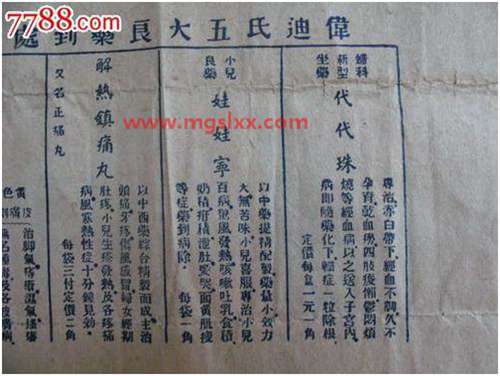 7788.com
偉迪氏五大良藥到處
婦科
新型
坐藥
代代珠
專治赤白帶下經血不調久不
孕育乾血癆四肢痠懶鬱悶煩
燒等經血病以之送入子宮內
病即隨藥化下輕症一粒除根
定價每盒一元一角
小兒
良藥
娃娃寧
以中藥提精配製藥量小效力
大無苦味小兒喜服專治小兒
百病風發熱咳嗽吐乳食積
奶積疳積瀉肚嬰面黃肌瘦
等症藥到病除
每袋一角
解熱鎮痛丸
又名正痛丸
以中西藥綜合精製而成主治
頭痛牙疼傷風感冒婦女經期
肚疼小兒生疹發熱及各疼痛
病風寒熱性症十分鐘見効
每袋三付定價二角
黃色
治脚氣濕氣搔癢
www.mgslxx.com